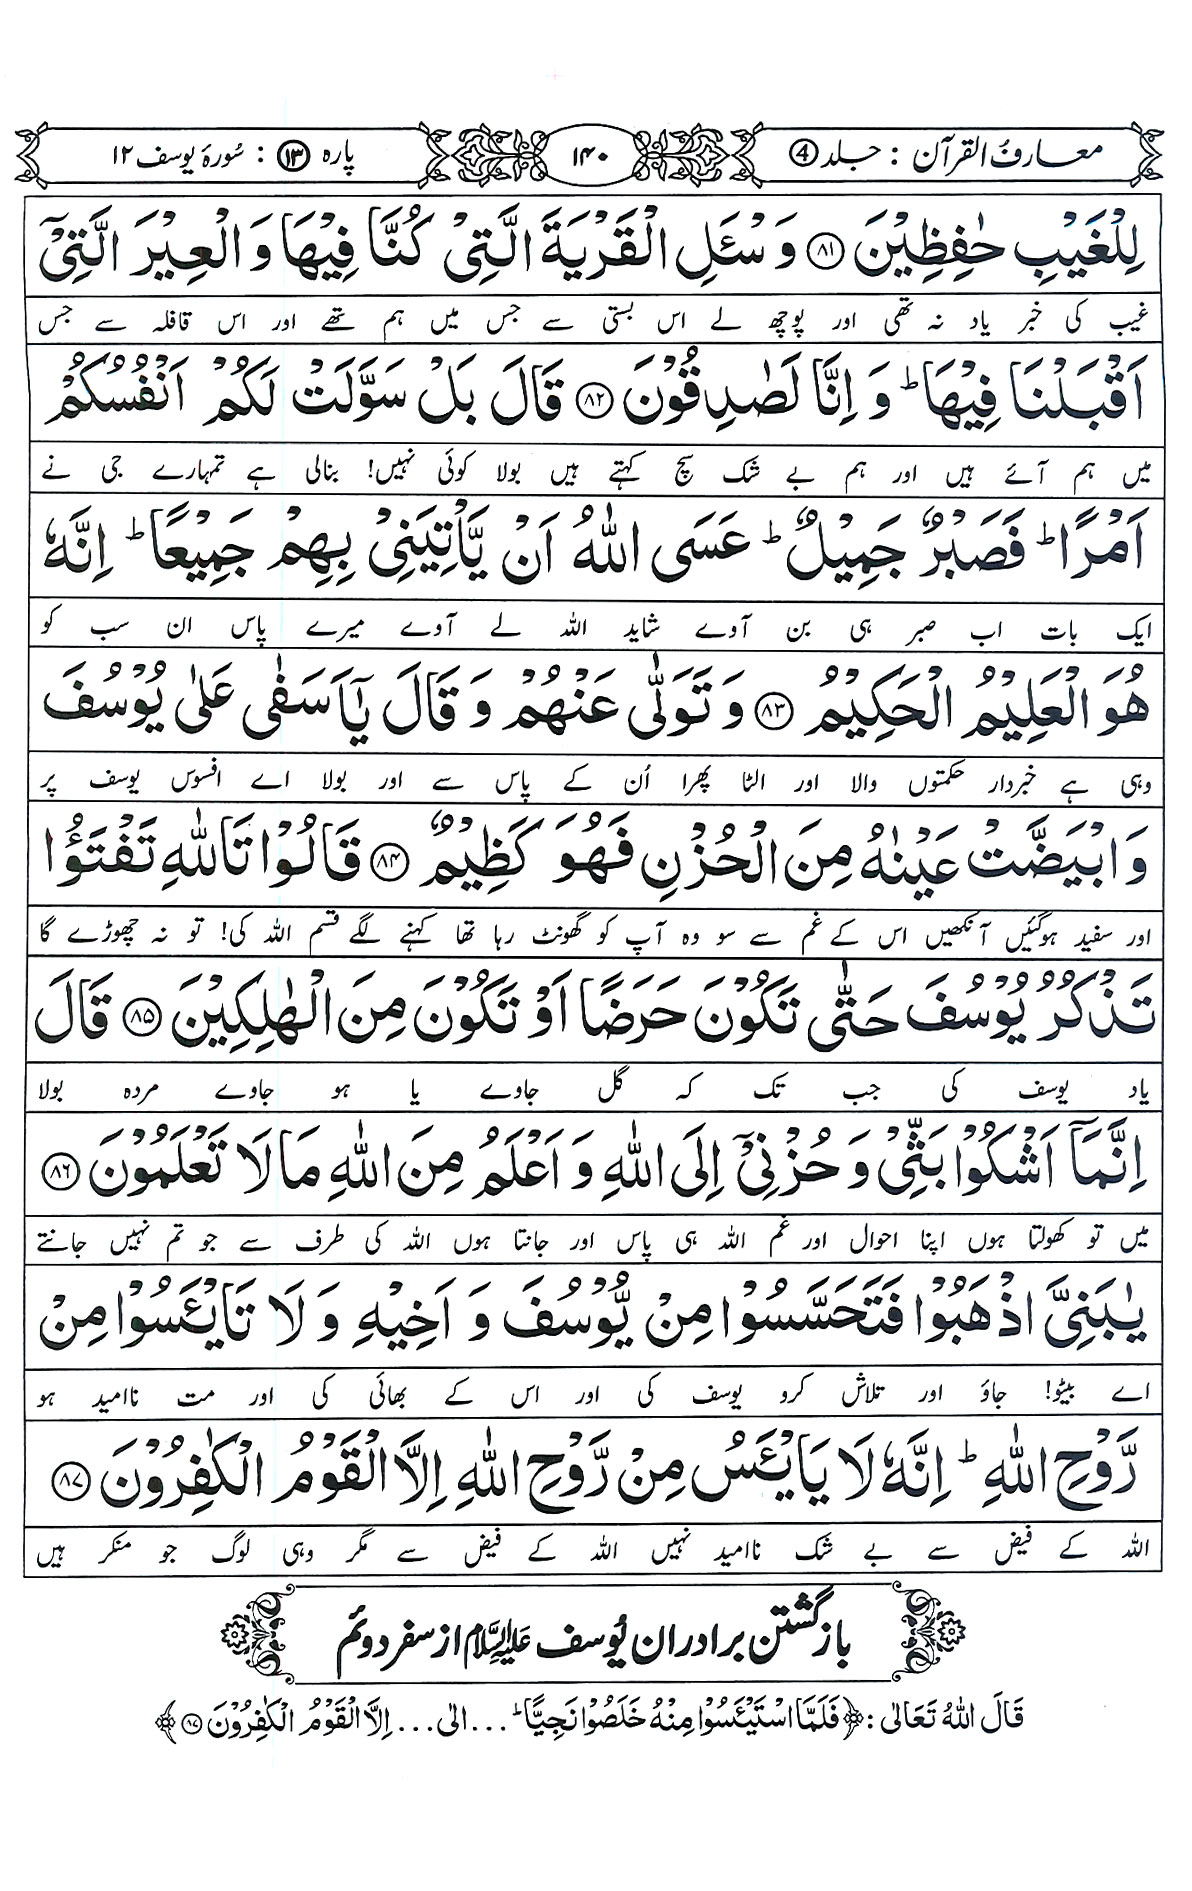 معارف القرآن : جلد ④ ۱۴۰ پارہ ⑬ : سُورۂ یوسف ۱۲
لِلْغَيْبِ حٰفِظِيْنَ ۸۱ وَ سْـَٔلِ الْقَرْيَةَ الَّتِيْ كُنَّا فِيْهَا وَ الْعِيْرَ الَّتِيْٓ
غیب کی خبر یاد نہ تھی اور پوچھ لے اس بستی سے جس میں ہم تھے اور اس قافلہ سے جس
اَقْبَلْنَا فِيْهَا ؕ وَ اِنَّا لَصٰدِقُوْنَ ۸۲ قَالَ بَلْ سَوَّلَتْ لَكُمْ اَنْفُسُكُمْ
میں ہم آئے ہیں اور ہم بے شک سچ کہتے ہیں بولا کوئی نہیں! بنالی ہے تمہارے جی نے
اَمْرًا ؕ فَصَبْرٌ جَمِيْلٌ ؕ عَسَى اللّٰهُ اَنْ يَّاْتِيَنِيْ بِهِمْ جَمِيْعًا ؕ اِنَّهٗ
ایک بات اب صبر ہی بن آوے شاید اللہ لے آوے میرے پاس ان سب کو
هُوَ الْعَلِيْمُ الْحَكِيْمُ ۸۳ وَ تَوَلّٰى عَنْهُمْ وَ قَالَ يٰۤاَسَفٰى عَلٰى يُوْسُفَ
وہی ہے خبردار حکمتوں والا اور الٹا پھرا اُن کے پاس سے اور بولا اے افسوس یوسف پر
وَ ابْيَضَّتْ عَيْنٰهُ مِنَ الْحُزْنِ فَهُوَ كَظِيْمٌ ۸۴ قَالُوْا تَاللّٰهِ تَفْتَؤُا
اور سفید ہوگئیں آنکھیں اس کے غم سے سو وہ آپ کو گھونٹ رہا تھا کہنے لگے قسم اللہ کی! تو نہ چھوڑے گا
تَذْكُرُ يُوْسُفَ حَتّٰى تَكُوْنَ حَرَضًا اَوْ تَكُوْنَ مِنَ الْهٰلِكِيْنَ ۸۵ قَالَ
یاد یوسف کی جب تک کہ گل جاوے یا ہو جاوے مردہ بولا
اِنَّمَاۤ اَشْكُوْا بَثِّيْ وَ حُزْنِيْۤ اِلَى اللّٰهِ وَ اَعْلَمُ مِنَ اللّٰهِ مَا لَا تَعْلَمُوْنَ ۸۶
میں تو کھولتا ہوں اپنا احوال اور غم اللہ ہی پاس اور جانتا ہوں اللہ کی طرف سے جو تم نہیں جانتے
يٰبَنِيَّ اذْهَبُوْا فَتَحَسَّسُوْا مِنْ يُّوْسُفَ وَ اَخِيْهِ وَ لَا تَايْـَٔسُوْا مِنْ
اے بیٹو! جاؤ اور تلاش کرو یوسف کی اور اس کے بھائی کی اور مت ناامید ہو
رَّوْحِ اللّٰهِ ؕ اِنَّهٗ لَا يَايْـَٔسُ مِنْ رَّوْحِ اللّٰهِ اِلَّا الْقَوْمُ الْكٰفِرُوْنَ ۸۷
اللہ کے فیض سے بے شک ناامید نہیں اللہ کے فیض سے مگر وہی لوگ جو منکر ہیں
بازگشتن برادران یُوسف علیہ السلام از سفر دوئم
قَالَ اللّٰهُ تَعَالٰى : ﴿فَلَمَّا اسْتَيْـَٔسُوْا مِنْهُ خَلَصُوْا نَجِيًّا ؕ ... الٰى ... اِلَّا الْقَوْمُ الْكٰفِرُوْنَ ۸۷﴾